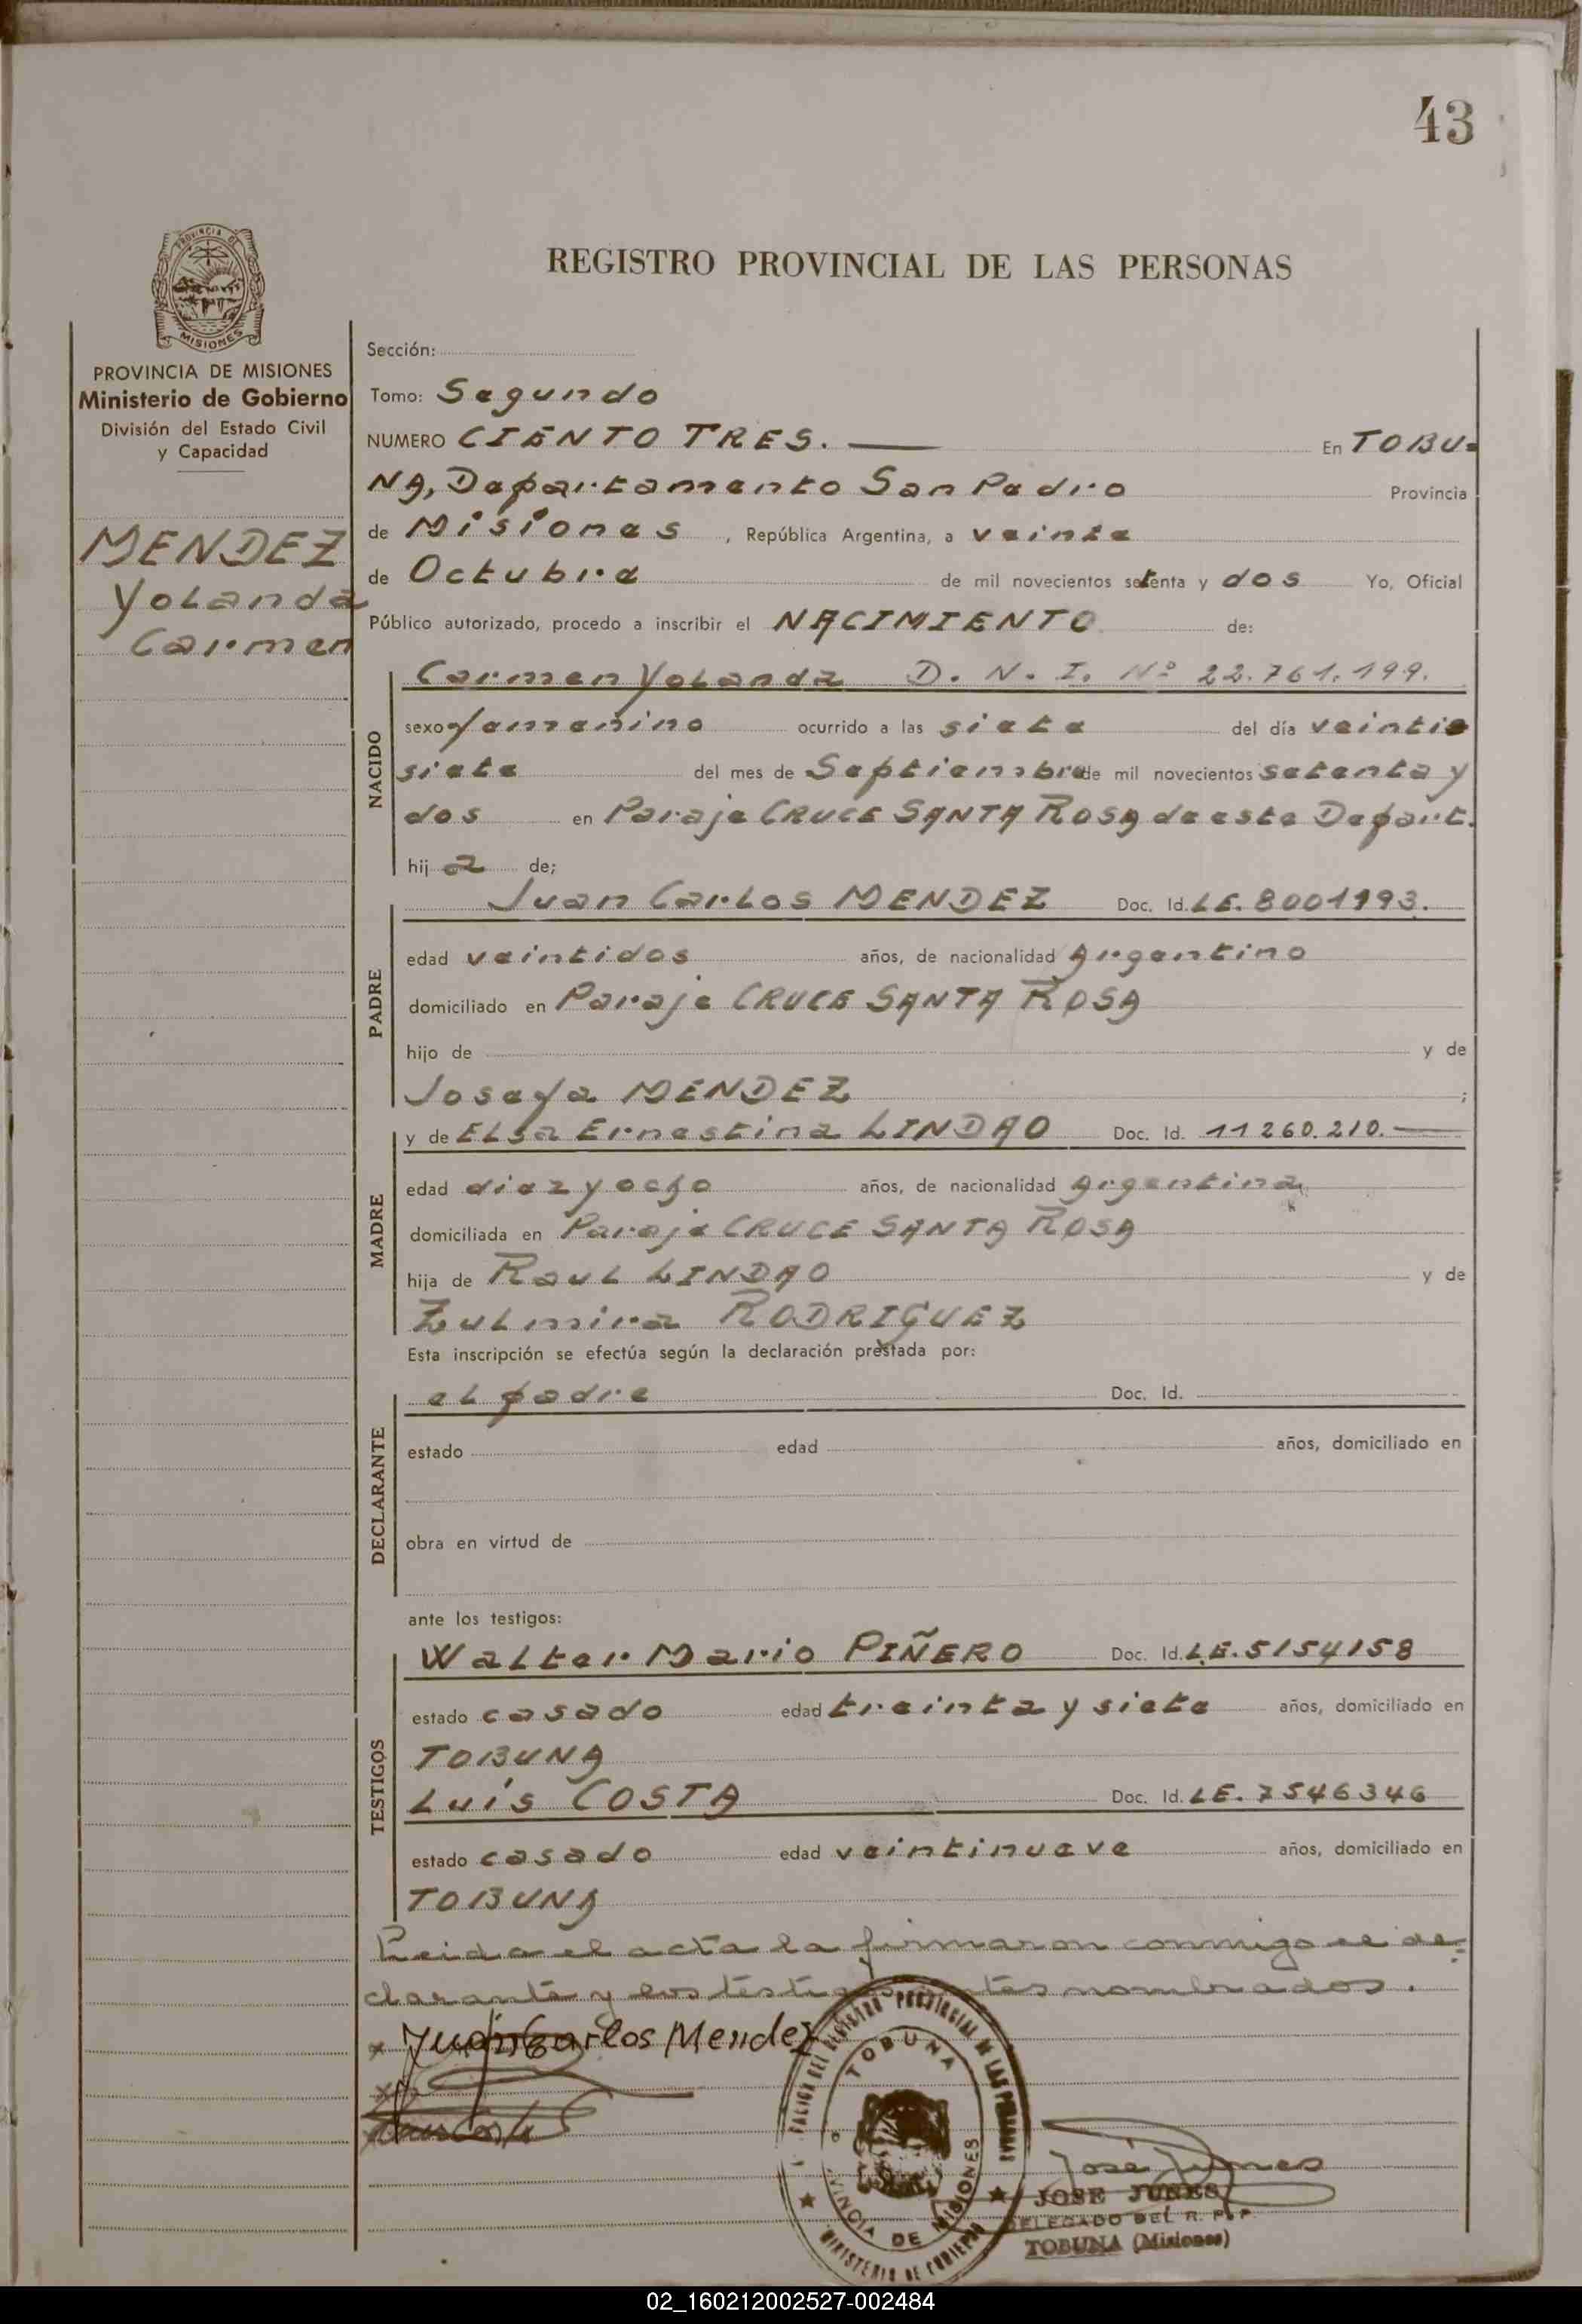 43
PROVINCIA DE
MISIONES
REGISTRO PROVINCIAL DE LAS PERSONAS
PROVINCIA DE MISIONES
Ministerio de Gobierno
División del Estado Civil
y Capacidad
MENDEZ
Yolanda
Carmen
Sección:
Tomo: Segundo
NUMERO CIENTO TRES. — En TOBU-
NA, Departamento San Pedro Provincia
de Misiones, República Argentina, a veinte
de Octubre de mil novecientos setenta y dos Yo, Oficial
Público autorizado, procedo a inscribir el NACIMIENTO de:
NACIDO
Carmen Yolanda D. N. I. Nº 22.761.199.
sexo femenino ocurrido a las siete del día veinti
siete del mes de Septiembre de mil novecientos setenta y
dos en Paraje CRUCE SANTA ROSA de este Depart.
hija de;
PADRE
Juan Carlos MENDEZ Doc. Id. LE. 8001993.
edad veintidos años, de nacionalidad Argentino
domiciliado en Paraje CRUCE SANTA ROSA
hijo de y de
Josefa MENDEZ ;
MADRE
y de Elsa Ernestina LINDAO Doc. Id. 11260.210. —
edad diez y ocho años, de nacionalidad Argentina
domiciliada en Paraje CRUCE SANTA ROSA
hija de Raul LINDAO y de
Zulmira RODRIGUEZ
Esta inscripción se efectúa según la declaración prestada por:
DECLARANTE
el padre Doc. Id.
estado edad años, domiciliado en
obra en virtud de
ante los testigos:
TESTIGOS
Walter Mario PIÑERO Doc. Id. L.E. 5154158
estado casado edad treinta y siete años, domiciliado en
TOBUNA
Luis COSTA Doc. Id. LE. 7546346
estado casado edad veintinueve años, domiciliado en
TOBUNA
Leida el acta la firmaron conmigo el de-
clarante y los testigos antes nombrados.
x Juan Carlos Mendez
Luis Costa
TOBUNA
PROVINCIA DE MISIONES
MINISTERIO DE GOBIERNO
José Junes
JOSE JUNES
DELEGADO DEL R. P. P.
TOBUNA (Misiones)
02_160212002527-002484